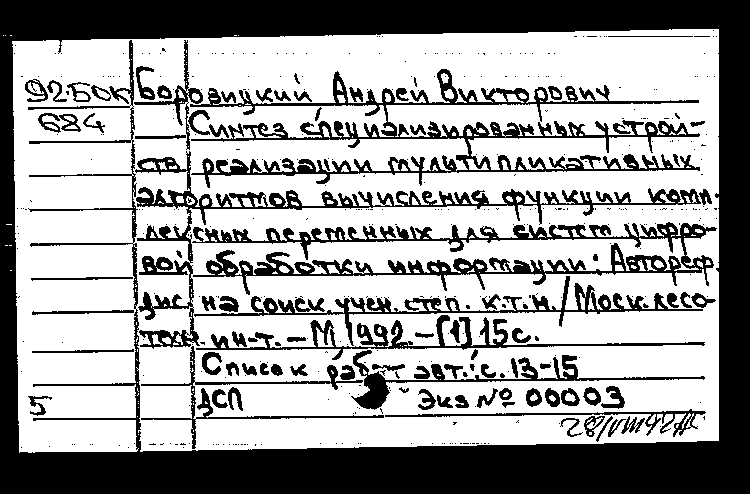 92-5ОК Боровицкий Андрей Викторович
684 Синтез специализированных устрой-
ств реализации мультипликативных
алгоритмов вычисления функции комп-
лексных переменных для систем цифро-
вой обработки информации: Автореф.
дис. на соиск. учен. степ. к.т.н./Моск. лесо-
техн. ин-т. - М 1992. - [1] 15 с.
Список работ авт.: с. 13-15
5 ДСП Экз № 00003
28/VIII 92